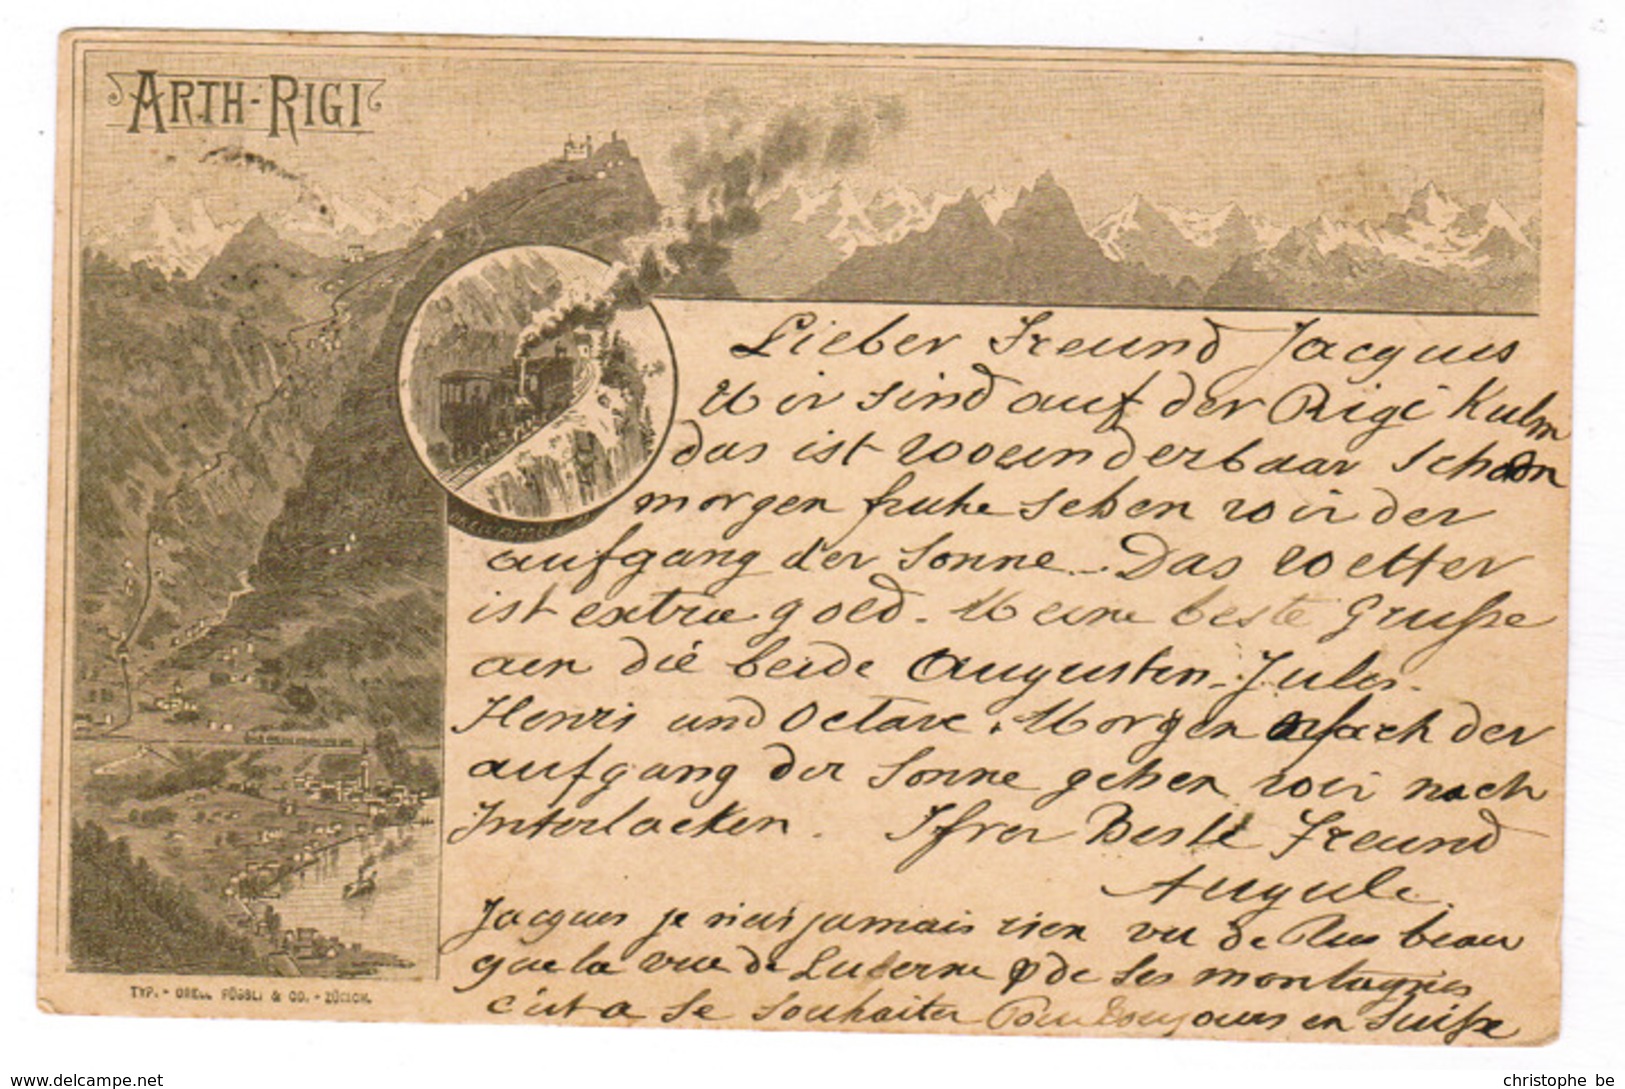 ARTH-RIGI
Lieber Freund Jacques
Wir sind auf der Rigi Kulm
das ist wounderbaar schon
morgen fruhe sehen wir der
aufgang der Sonne. Das wetter
ist extra goed. Meine beste Grusse
aen die beide Augusten. Jules.
Henris und Octave. Morgen nach der
aufgang der Sonne gehen wir nach
Interlacken. Beste Freund
Jacques je n'ai jamais rien vu de Plus beau
que la vue de Lucerne de ses montagnes
c'est a se souhaiter toujours en Suisse
TYP. - ORELL FÜSSLI & CO. - ZÜRICH.
christophe be